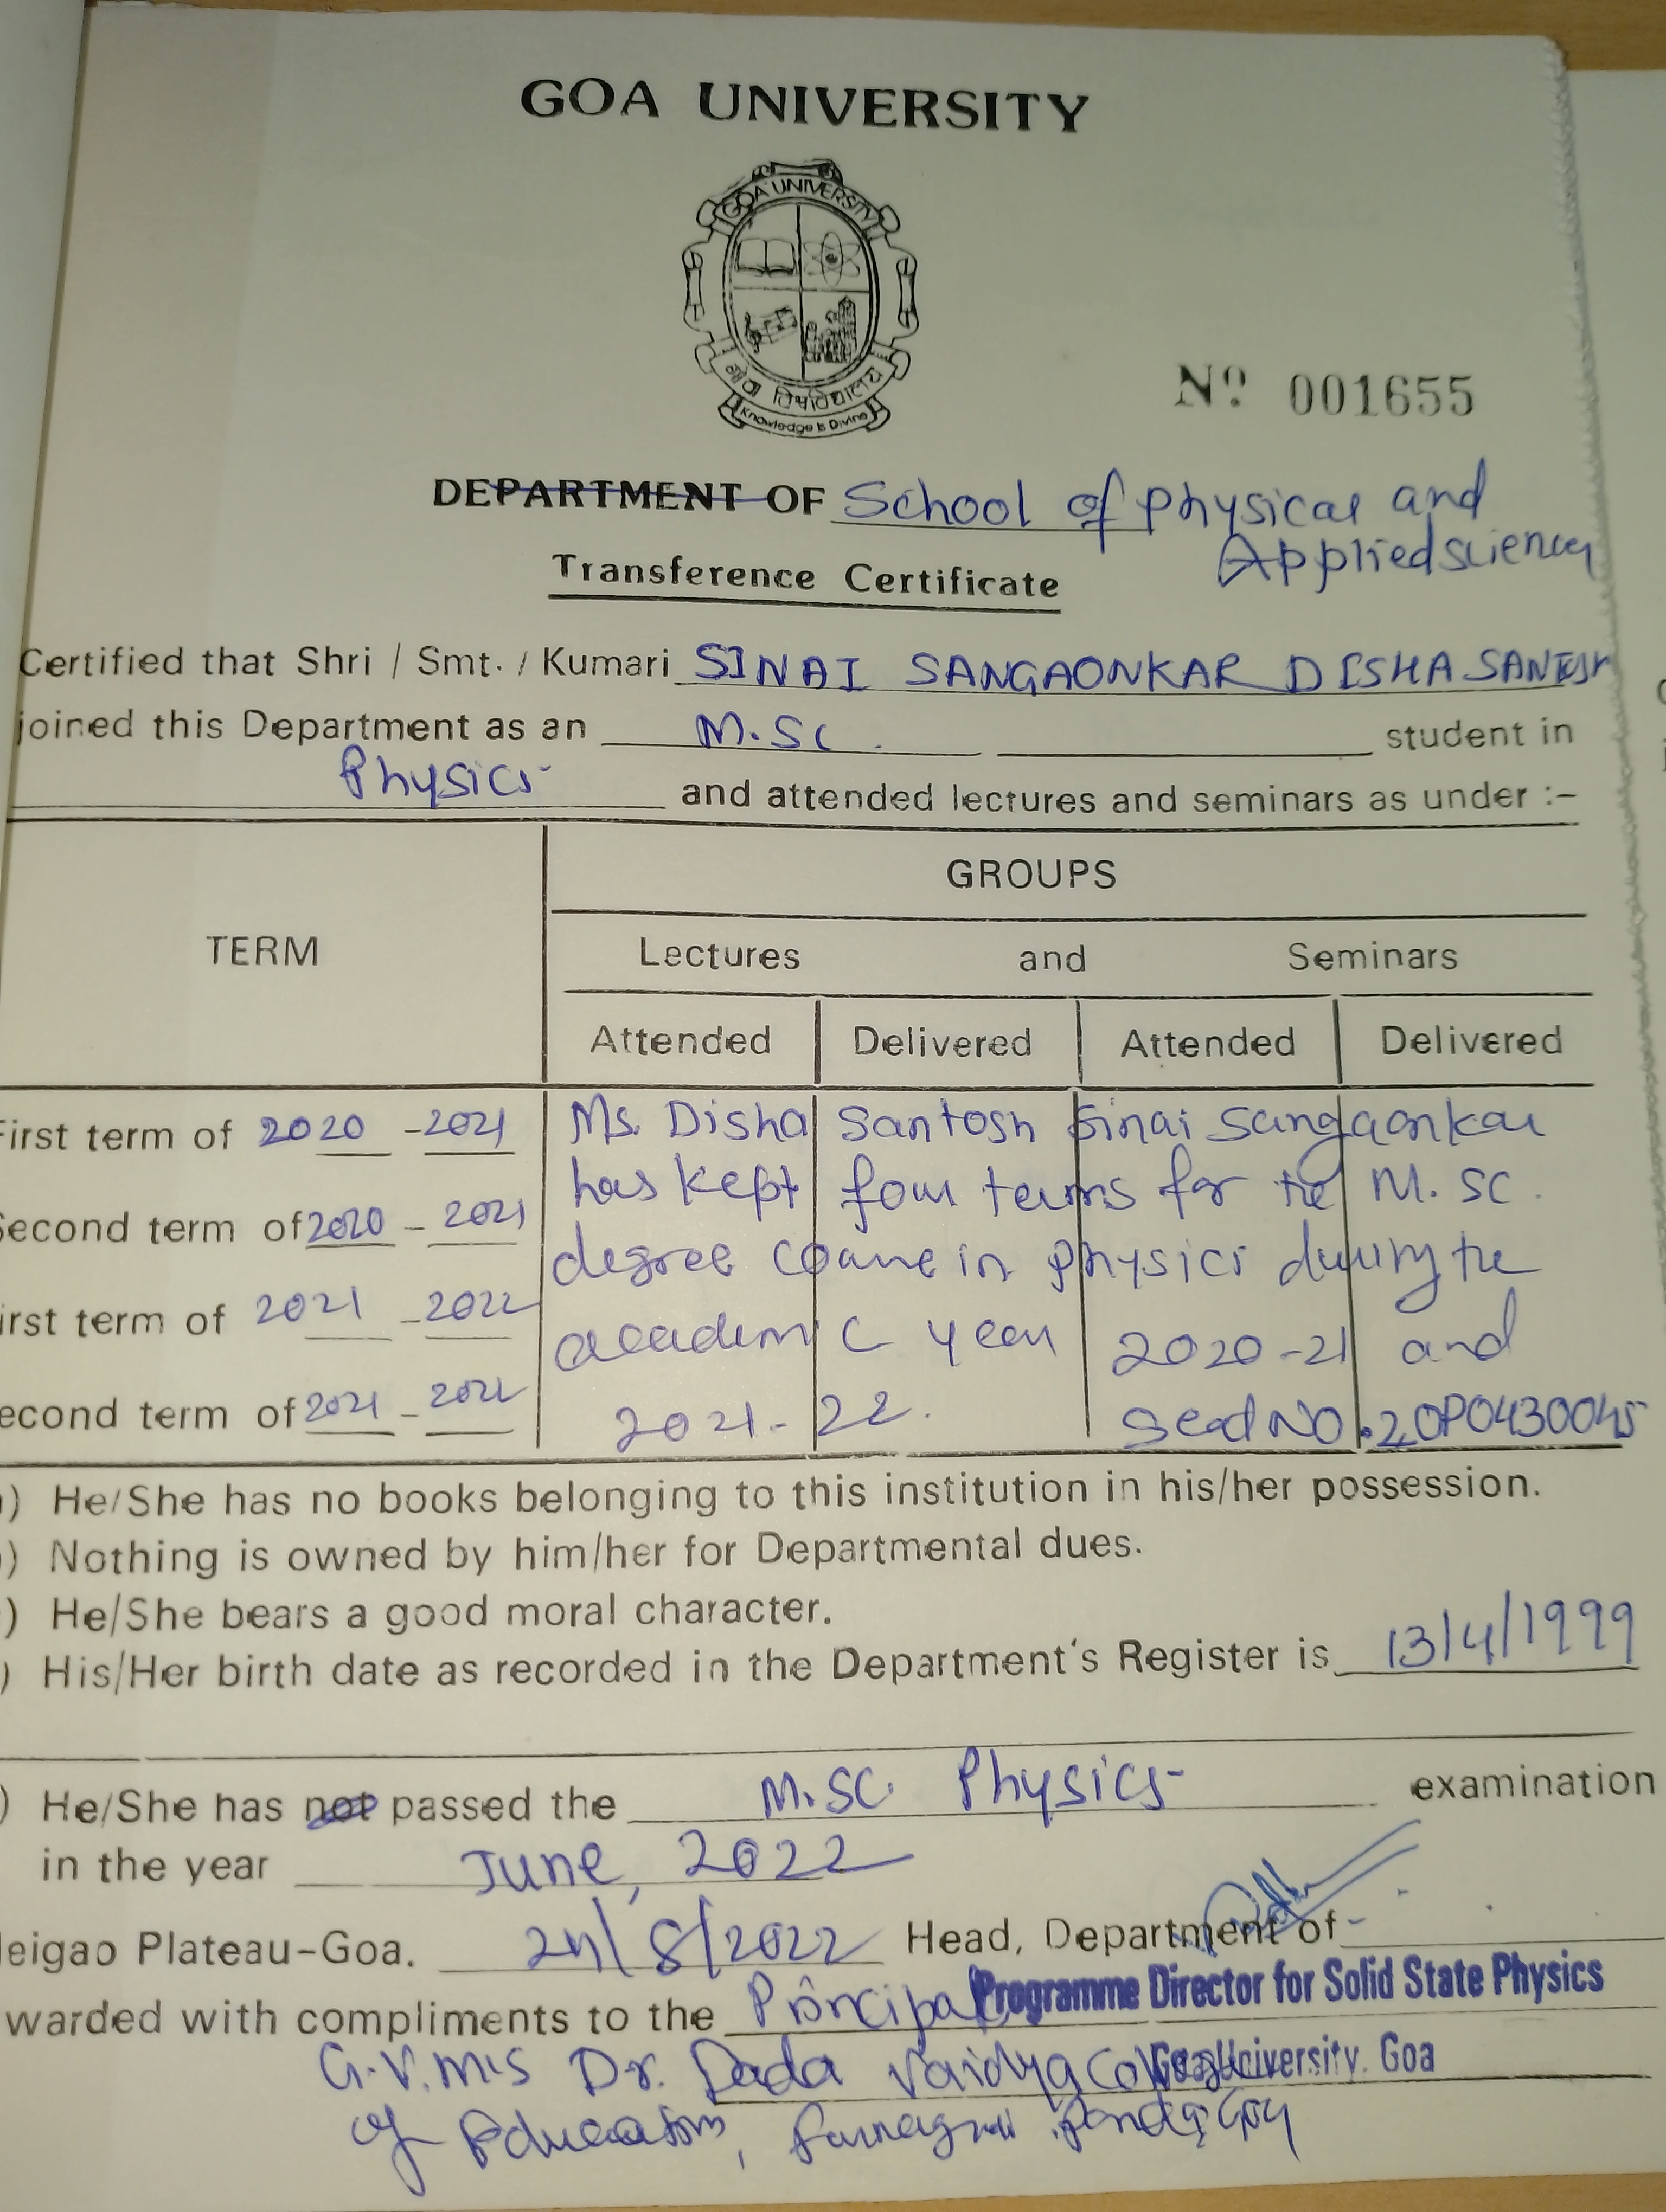 GOA UNIVERSITY
GOA UNIVERSITY
गोंय विश्वविद्यालय
Knowledge is Divine
Nº 001655
DEPARTMENT OF School of Physical and
Applied sciences
Transference Certificate
Certified that Shri / Smt. / Kumari SINAI SANGAONKAR DISHA SANTOSH
joined this Department as an M.Sc. student in
Physics and attended lectures and seminars as under :-
TERM
GROUPS
Lectures and Seminars
Attended Delivered Attended Delivered
First term of 2020 - 2021
Second term of 2020 - 2021
irst term of 2021 - 2022
econd term of 2021 - 2022
Ms. Disha Santosh Sinai Sangaonkar
has kept four terms for the M. Sc.
degree course in physics during the
academic year 2020-21 and
2021-22. Seat No. 20P0430045
) He/She has no books belonging to this institution in his/her possession.
) Nothing is owned by him/her for Departmental dues.
) He/She bears a good moral character.
) His/Her birth date as recorded in the Department's Register is 13/4/1999
) He/She has not passed the M.SC. Physics examination
in the year June, 2022
leigao Plateau-Goa. 24/8/2022 Head, Department of
warded with compliments to the Principal
Programme Director for Solid State Physics
Goa University. Goa
G.V.M's Dr. Dada Vaidya College
of Education, Ponda, Goa